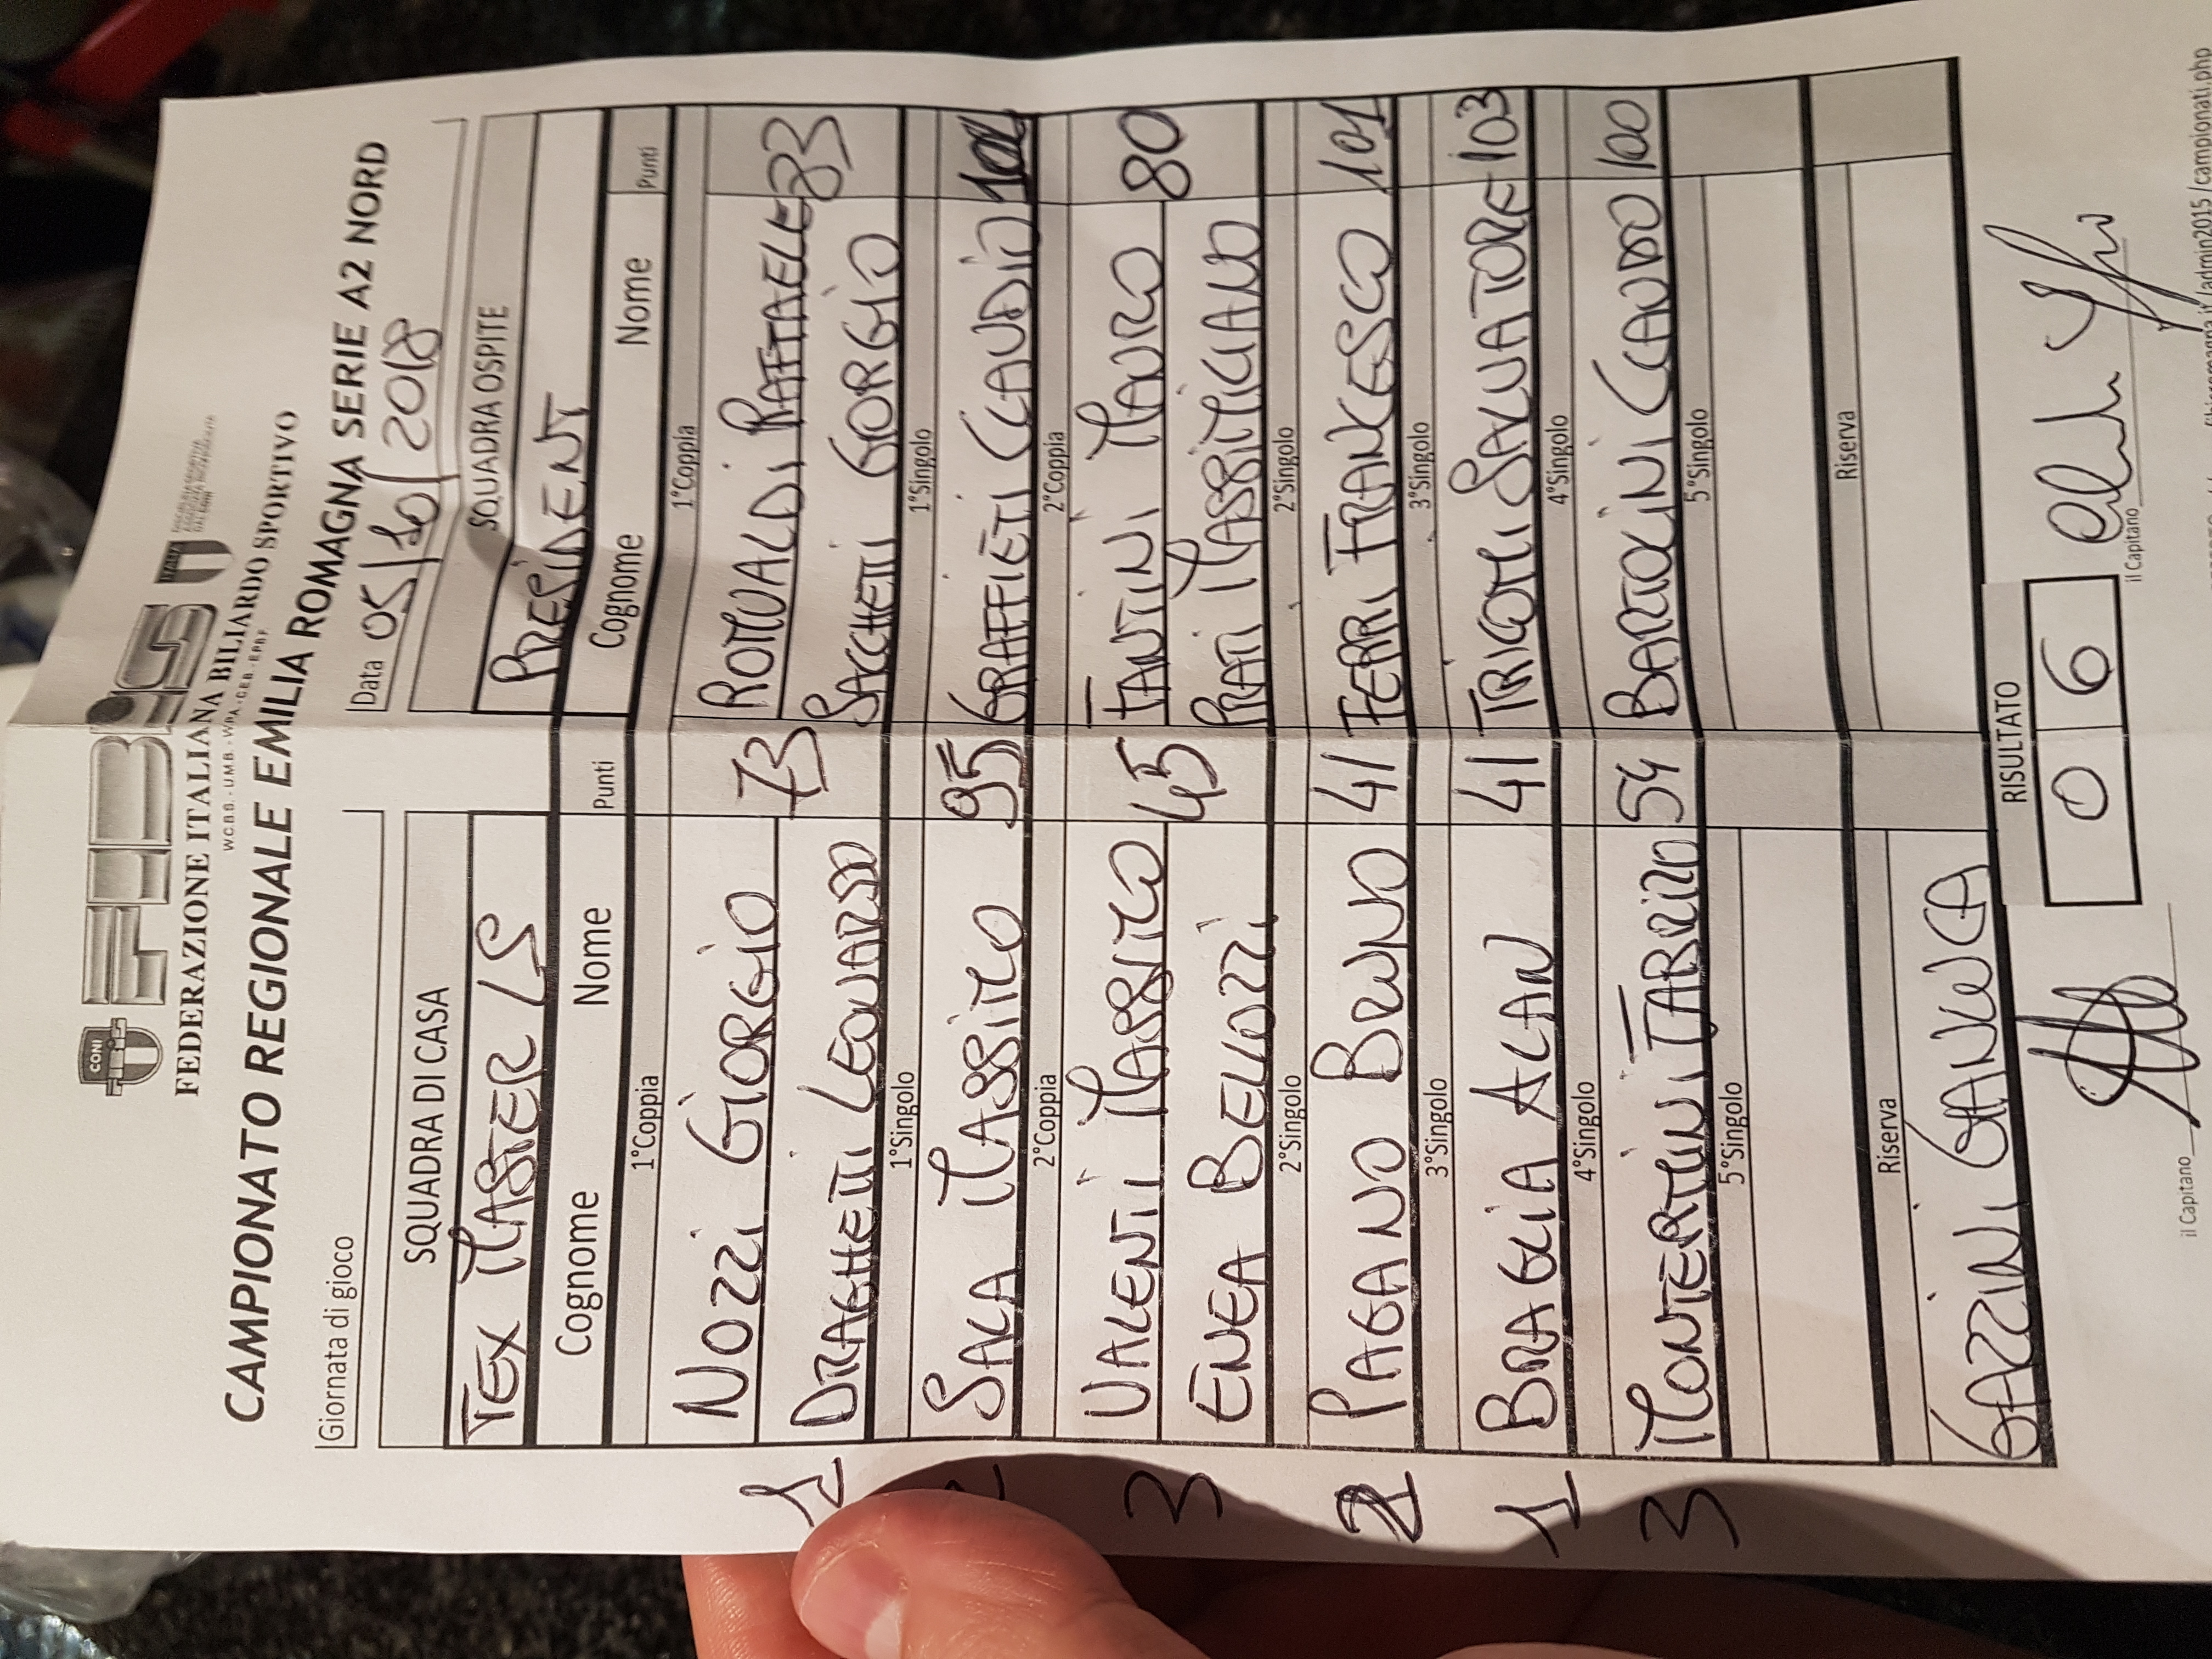 CONI FIBiS ITALIA
FEDERAZIONE ITALIANA BILIARDO SPORTIVO
W.C.B.S. - U.M.B. - W.P.A. - C.E.B. - E.P.B.F.
CAMPIONATO REGIONALE EMILIA ROMAGNA SERIE A2 NORD
Giornata di gioco Data 05/10/2018
SQUADRA DI CASA SQUADRA OSPITE
TEX MASTER LS PRESIDENT
Cognome Nome Punti Cognome Nome Punti
1°Coppia 1°Coppia
NOZZI GIORGIO ROMUALDI RAFFAELE
1 73 83
DRAGHETTI LEONARDO SACCHETTI GORGIO
1°Singolo 1°Singolo
2 SALA MASSIMO 95 GRAFFIETI CLAUDIO
2°Coppia 2°Coppia
VALENTI MASSIMO FANTINI MAURO
3 45 80
ENEA BELLOZZI PRATI MASSIMILIANO
2°Singolo 2°Singolo
2 PAGANO BRUNO 41 FERRI FRANCESCO 101
3°Singolo 3°Singolo
1 BRAGLIA ALAN 41 TRIGOMI SALVATORE 103
4°Singolo 4°Singolo
3 MONTERMINI FABRIZIO 54 BARTOLINI CLAUDIO 100
5°Singolo 5°Singolo
Riserva Riserva
GAZZINI GIANLUCA
RISULTATO
0 6
il Capitano il Capitano
/admin2015/campionati.php